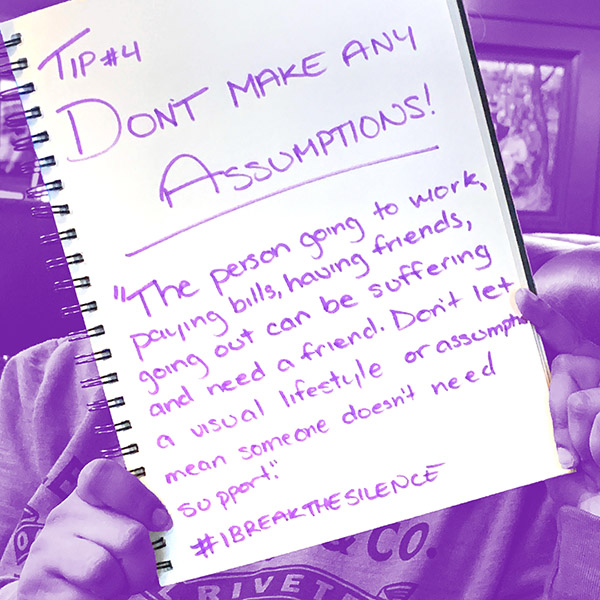 TIP #4
DONT MAKE ANY
ASSUMPTIONS!
"The person going to work,
paying bills, having friends,
going out can be suffering
and need a friend. Don't let
a visual lifestyle or assumptio
mean someone doesn't need
support."
#IBREAKTHESILENCE
& CO.
RIVETE